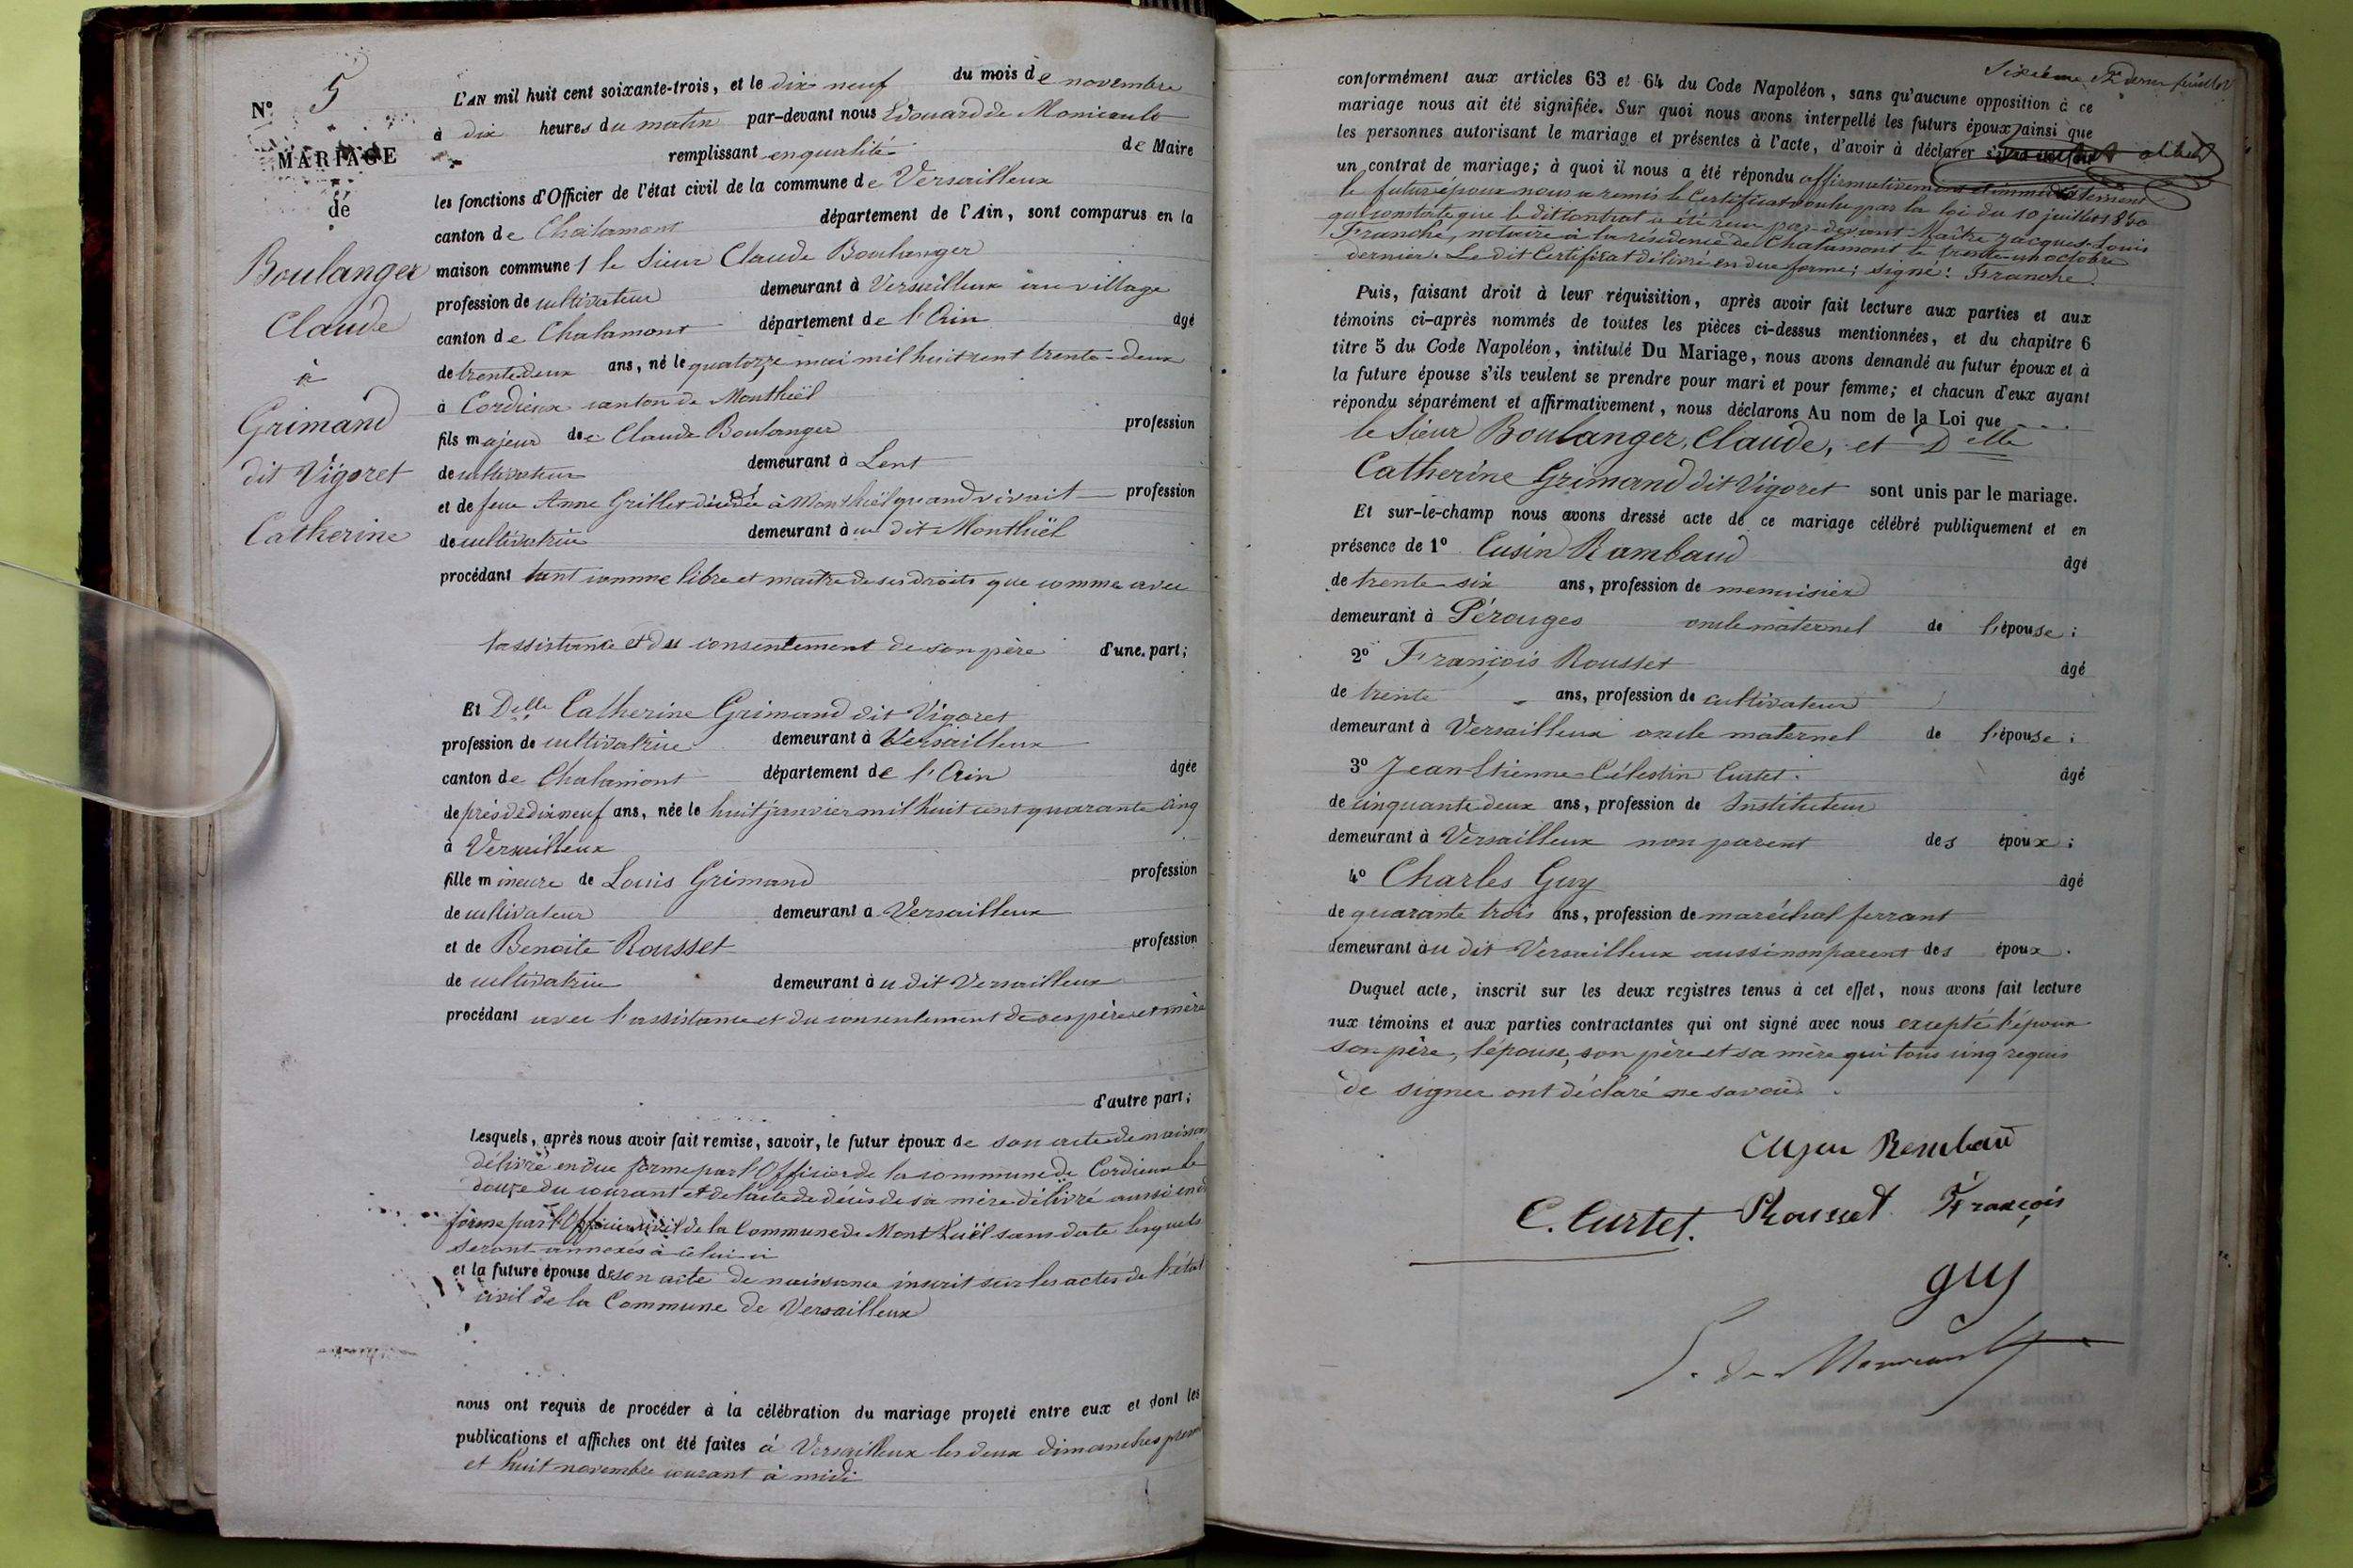 N.° 5
MARIAGE
de
Boulanger
Claude
à
Grimand
dit Vigoret
Catherine
L'AN mil huit cent soixante-trois, et le dix neuf du mois de novembre
à dix heures du matin par-devant nous Edouard de Monicault
remplissant en qualité de Maire
les fonctions d'Officier de l'état civil de la commune de Versailleux
canton de Chalamont département de l'Ain, sont comparus en la
maison commune 1 le Sieur Claude Boulanger
profession de cultivateur demeurant à Versailleux au village
canton de Chalamont département de l'Ain âgé
de trente deux ans, né le quatorze mai mil huit cent trente-deux
à Cordieux canton de Monthiël
fils majeur de Claude Boulanger profession
de cultivateur demeurant à Lent
et de feue Anne Grillet décédée à Monthiël quand vivait profession
de cultivatrice demeurant à u dit Monthiël
procédant tant comme libre et maître de ses droits que comme avec
l'assistance et du consentement de son père d'une part;
Et Delle Catherine Grimand dit Vigoret
profession de cultivatrice demeurant à Versailleux
canton de Chalamont département de l'Ain âgée
de près de dix neuf ans, née le huit janvier mil huit cent quarante cinq
à Versailleux
fille mineure de Louis Grimand profession
de cultivateur demeurant a Versailleux
et de Benoite Rousset profession
de cultivatrice demeurant à u dit Versailleux
procédant avec l'assistance et du consentement de ses père et mère
d'autre part;
Lesquels, après nous avoir fait remise, savoir, le futur époux de son acte de naissan
délivré en due forme par l'Officier de la commune de Cordieux le
douze du courant et de l'acte de décès de sa mère délivré aussi en d
forme par l'Officier civil de la Commune de Monthuël sans date lesquels
seront annexés à celui-ci
et la future épouse de son acte de naissance inscrit sur les actes de l'état
civil de la Commune de Versailleux
nous ont requis de procéder à la célébration du mariage projeté entre eux et dont les
publications et affiches ont été faites à Versailleux les deux dimanches prem
et huit novembre courant à midi
Sixième & dernier feuillet
conformément aux articles 63 et 64 du Code Napoléon, sans qu'aucune opposition à ce
mariage nous ait été signifiée. Sur quoi nous avons interpellé les futurs époux, ainsi que
les personnes autorisant le mariage et présentes à l'acte, d'avoir à déclarer
un contrat de mariage; à quoi il nous a été répondu affirmativement et immédiatement
le futur époux nous a remis le Certificat voulu par la loi du 10 juillet 1850
qui constate que le dit contrat a été reçu par-devant Maître Jacques-Louis
Franche, notaire à la résidence de Chalamont le trente-un octobre
dernier. Le dit Certificat délivré en due forme; signé: Franche.
Puis, faisant droit à leur réquisition, après avoir fait lecture aux parties et aux
témoins ci-après nommés de toutes les pièces ci-dessus mentionnées, et du chapitre 6
titre 5 du Code Napoléon, intitulé Du Mariage, nous avons demandé au futur époux et à
la future épouse s'ils veulent se prendre pour mari et pour femme; et chacun d'eux ayant
répondu séparément et affirmativement, nous déclarons Au nom de la Loi que
le Sieur Boulanger, Claude, et Delle
Catherine Grimand dit Vigoret sont unis par le mariage.
Et sur-le-champ nous avons dressé acte de ce mariage célébré publiquement et en
présence de 1° Cusin Rambaud âgé
de trente-six ans, profession de menuisier
demeurant à Pérouges oncle maternel de l'épouse;
2° François Rousset âgé
de trente ans, profession de cultivateur
demeurant à Versailleux oncle maternel de l'épouse;
3° Jean-Etienne-Célestin Curtet. âgé
de cinquante deux ans, profession de Instituteur
demeurant à Versailleux non parent des époux;
4° Charles Guy âgé
de quarante trois ans, profession de maréchal ferrant
demeurant à u dit Versailleux aussi non parent des époux.
Duquel acte, inscrit sur les deux registres tenus à cet effet, nous avons fait lecture
aux témoins et aux parties contractantes qui ont signé avec nous excepté l'époux
son père, l'épouse, son père et sa mère qui tous cinq requis
de signer ont déclaré ne savoir.
Rembaud
C. Curtet. Rousset François
guy